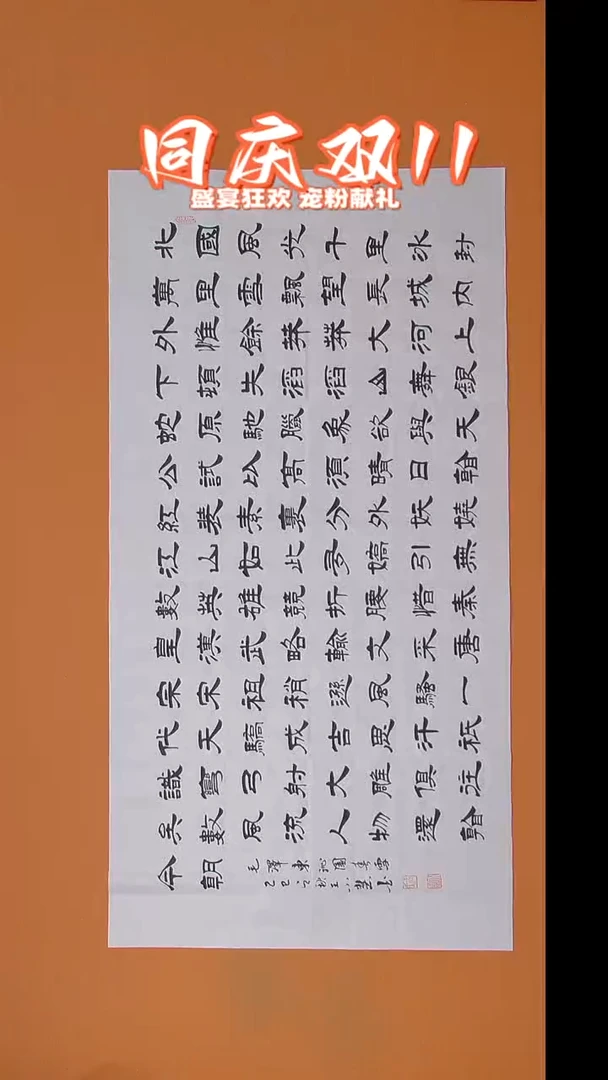 同庆双11
盛宴狂欢 宠粉献礼
北國風光千里冰封
萬里雪飄望長城內
外惟餘莽莽大河上
下頓失滔滔山舞銀
蛇原馳臘象欲與天
公試比高須晴日看
紅裝素裹分外妖嬈
江山如此多嬌引無
數英雄競折腰惜秦
皇漢武略輸文采唐
宗宋祖稍遜風騷一
代天驕成吉思汗祇
識彎弓射大雕俱往
矣數風流人物還看
今朝
毛澤東沁園春雪